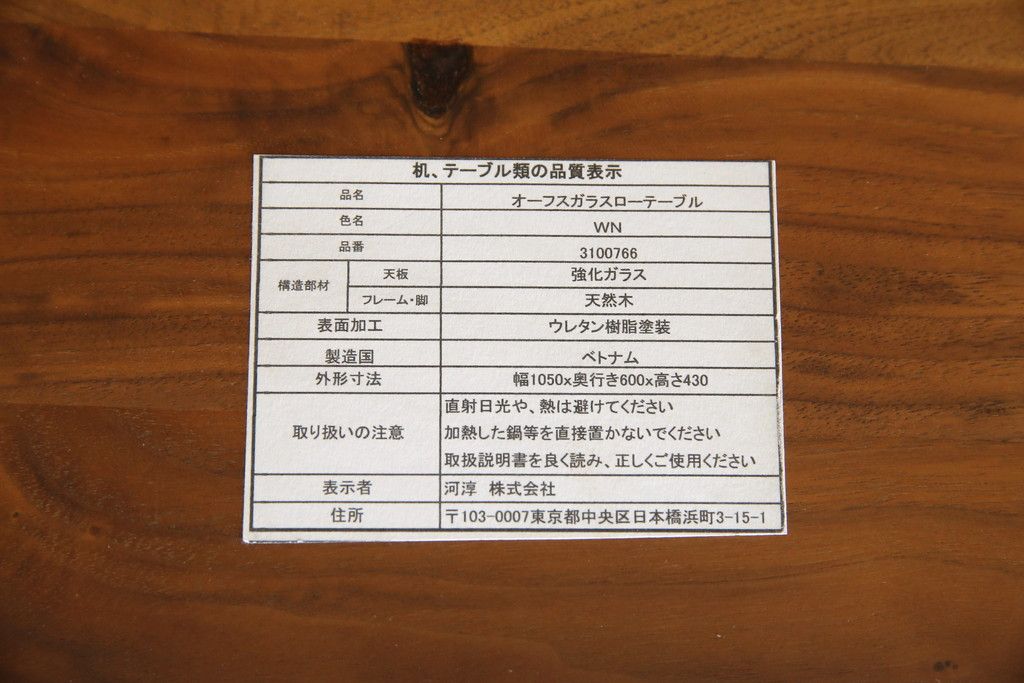 机、テーブル類の品質表示
品名 オーフスガラスローテーブル
色名 WN
品番 3100766
構造部材 天板 強化ガラス
フレーム・脚 天然木
表面加工 ウレタン樹脂塗装
製造国 ベトナム
外形寸法 幅1050x奥行き600x高さ430
取り扱いの注意 直射日光や、熱は避けてください
加熱した鍋等を直接置かないでください
取扱説明書を良く読み、正しくご使用ください
表示者 河淳 株式会社
住所 〒103-0007東京都中央区日本橋浜町3-15-1